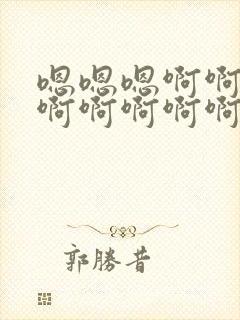 嗯嗯嗯啊啊
啊啊啊啊啊
郭勝昔